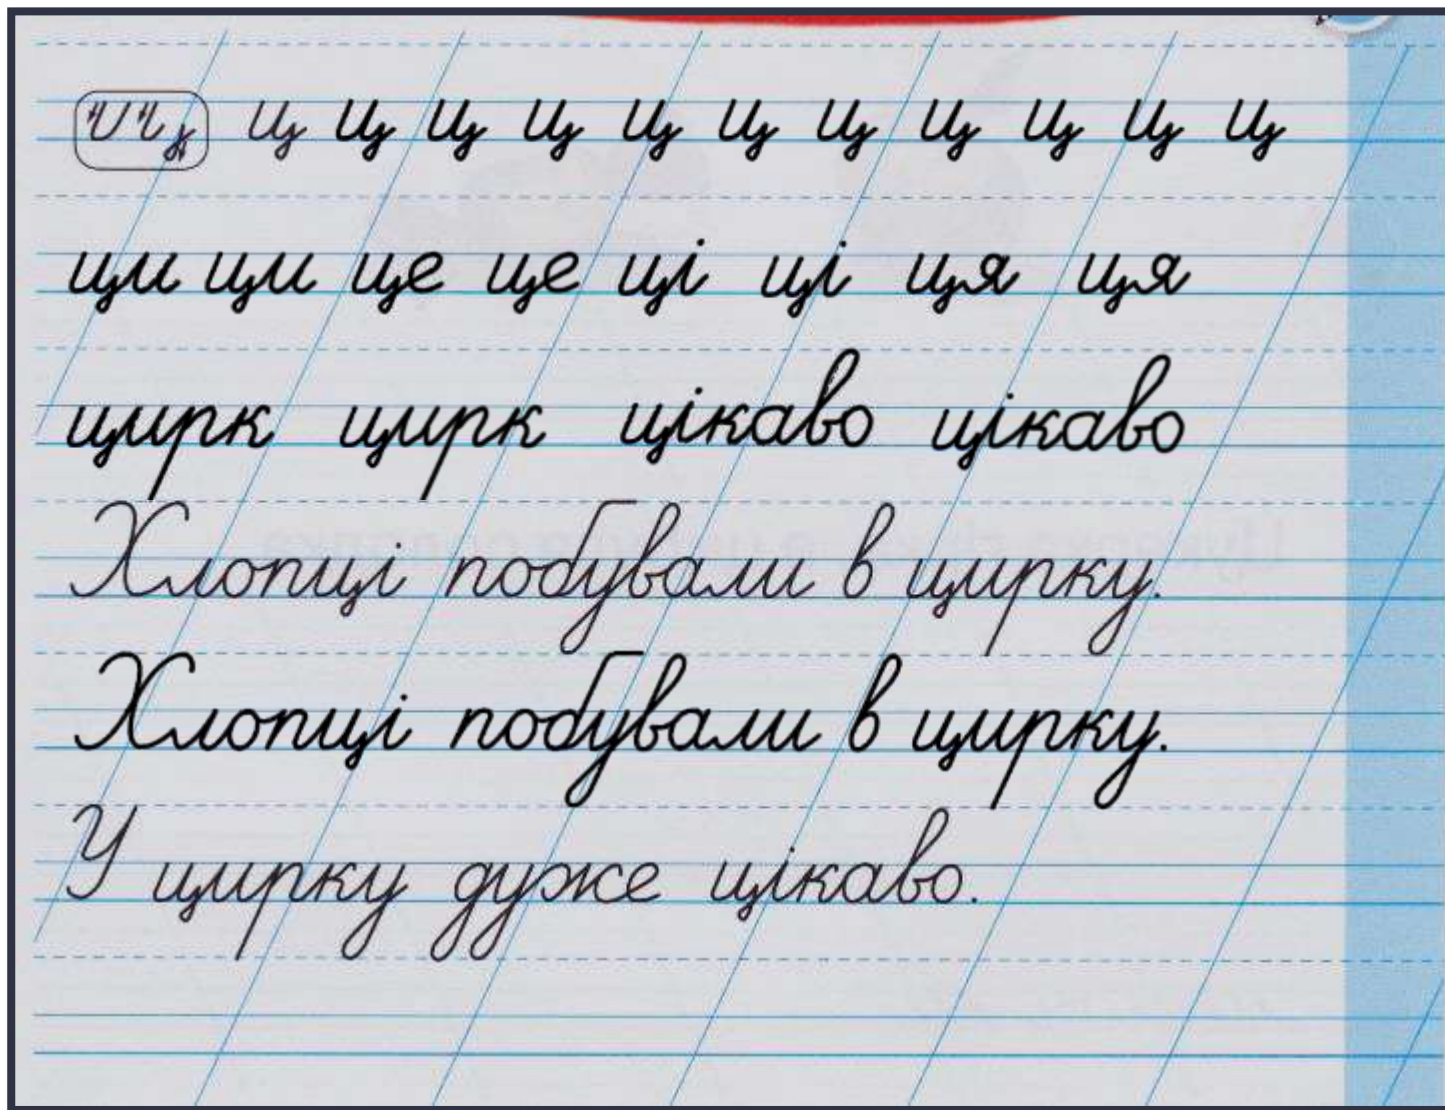 ц ц ц ц ц ц ц ц ц ц ц
ци ци це це ці ці ця ця
цирк цирк цікаво цікаво
Хлопці побували в цирку.
Хлопці побували в цирку.
У цирку дуже цікаво.